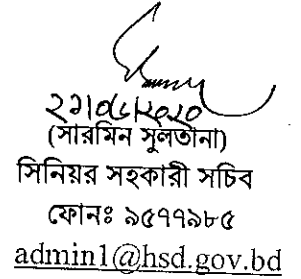 (সারমিন সুলতানা)
সিনিয়র সহকারী সচিব
ফোনঃ ৯৫৭৭৯৮৫
admin1@hsd.gov.bd